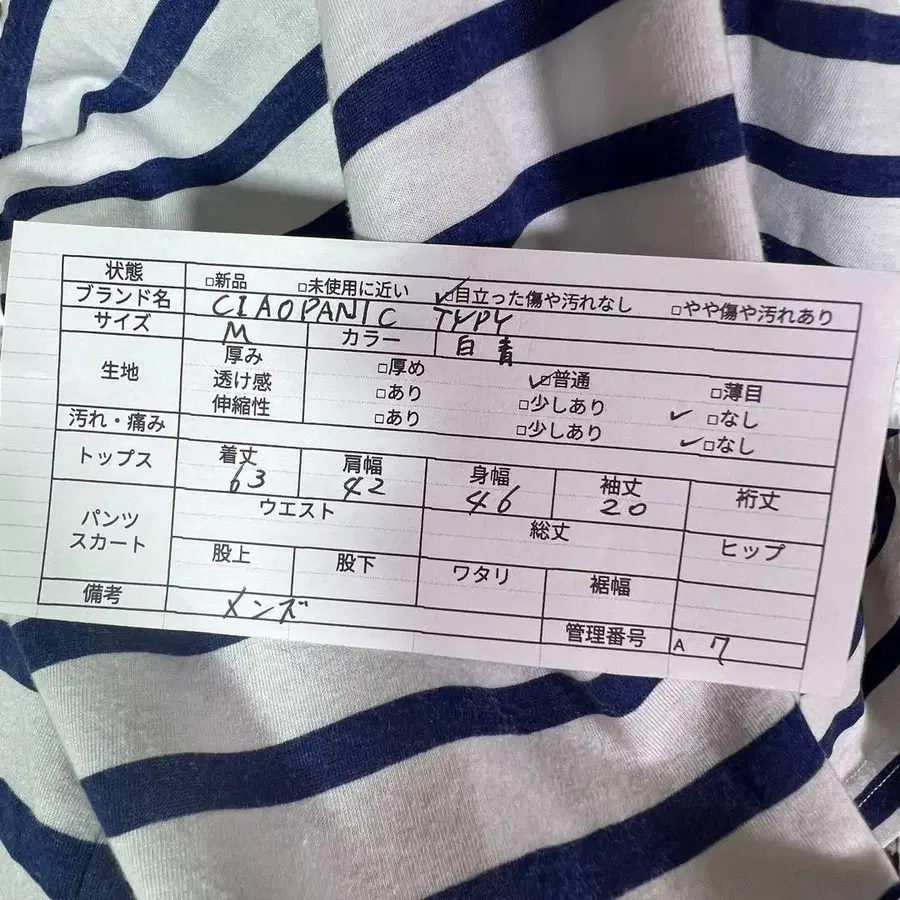 状態 □新品 □未使用に近い ☑目立った傷や汚れなし □やや傷や汚れあり
ブランド名 CIAOPANIC TYPY
サイズ M カラー 白 青
生地 厚み □厚め ☑普通 □薄目
透け感 □あり □少しあり ✓□なし
伸縮性 □あり □少しあり ✓□なし
汚れ・痛み
トップス 着丈 肩幅 身幅 袖丈 裄丈
63 42 46 20
パンツ スカート ウエスト 総丈 ヒップ
股上 股下 ワタリ 裾幅
備考 メンズ
管理番号 A 7